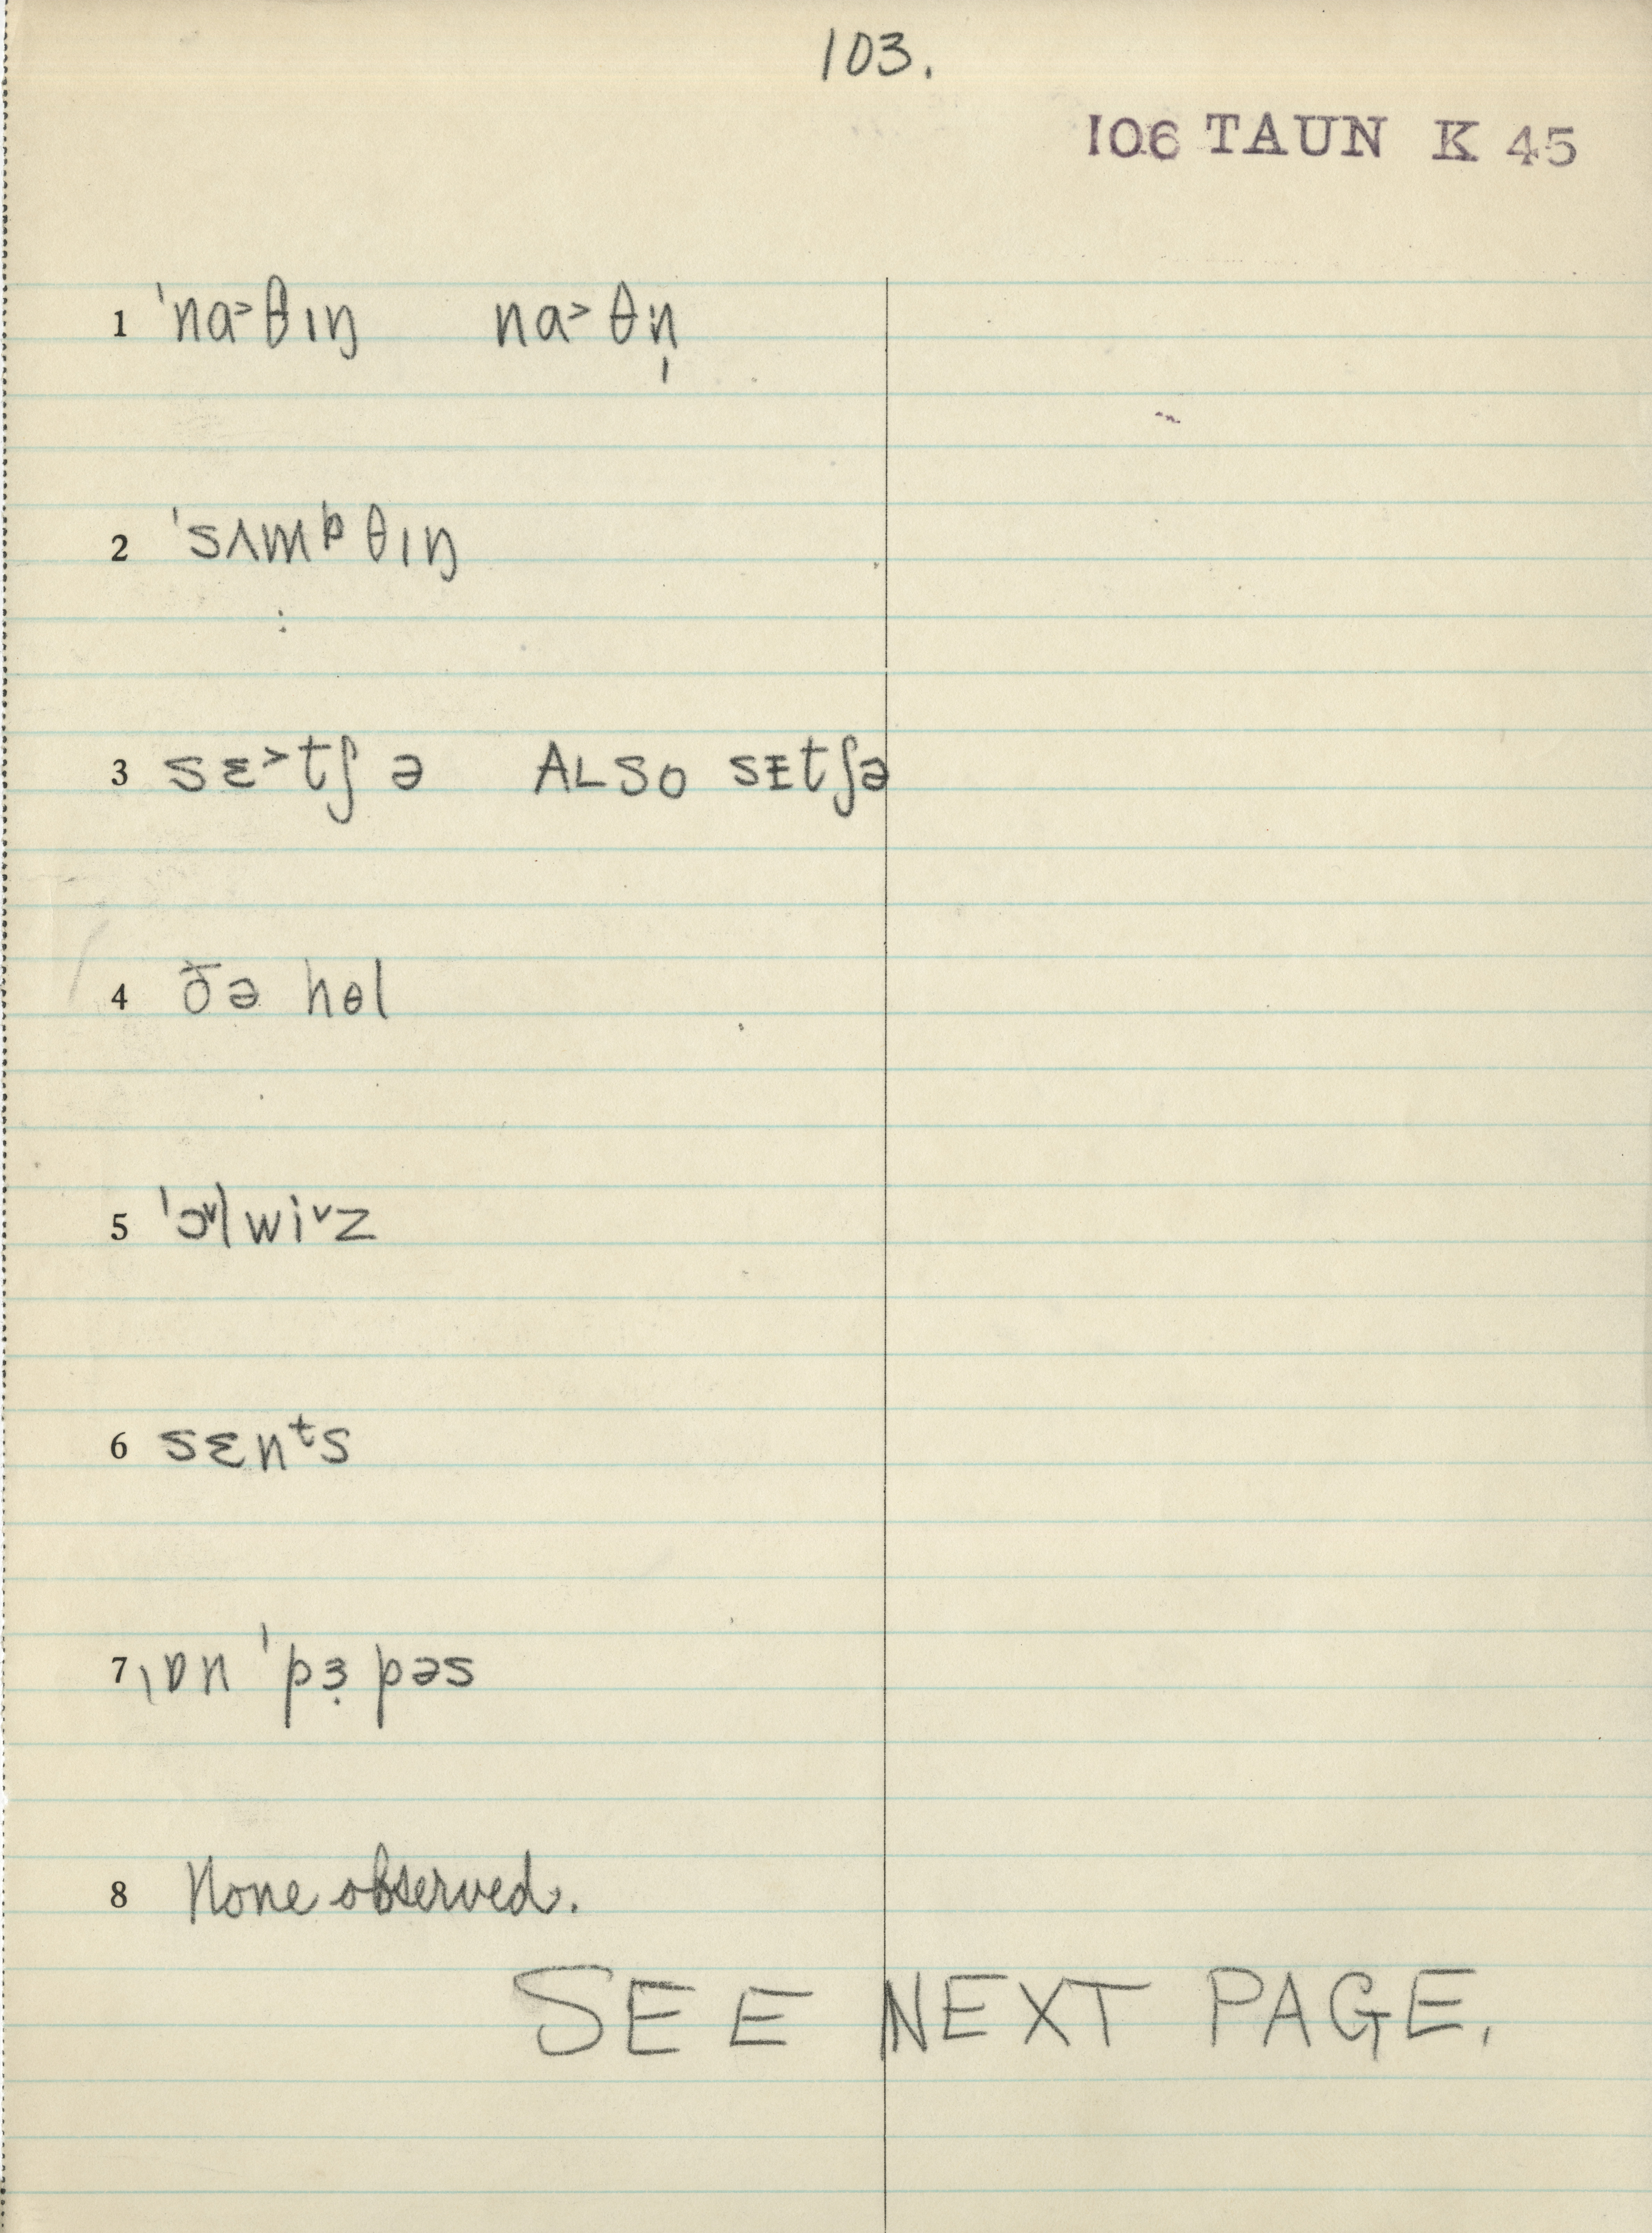 103.
106 TAUN K 45
1 ˈna˃θɪŋ na˃θn̩
2 ˈsʌmᵖθɪŋ
3 sɛ˃tʃə ALSO sɪtʃə
4 ðə hɵl
5 ˈɔ˅lwi˅z
6 sɛnᵗs
7 ˌɒn ˈpɜ̣pəs
8 None observed.
SEE NEXT PAGE.